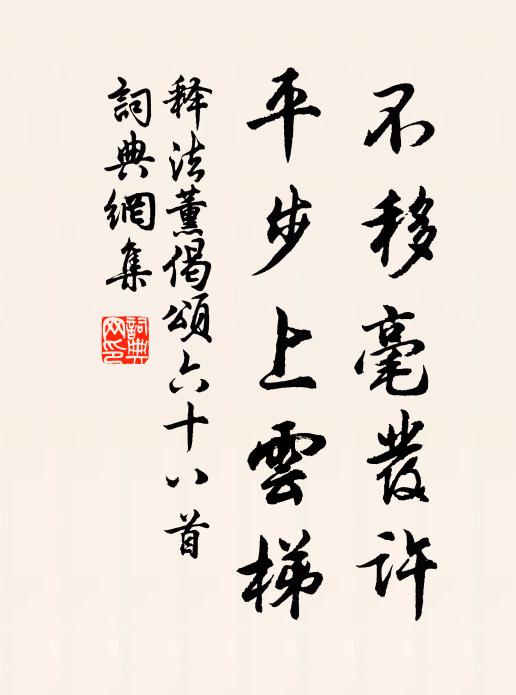 不移毫發許
平步上雲梯
释法薰偈頌六十八首
詞典網集
詞典
网印